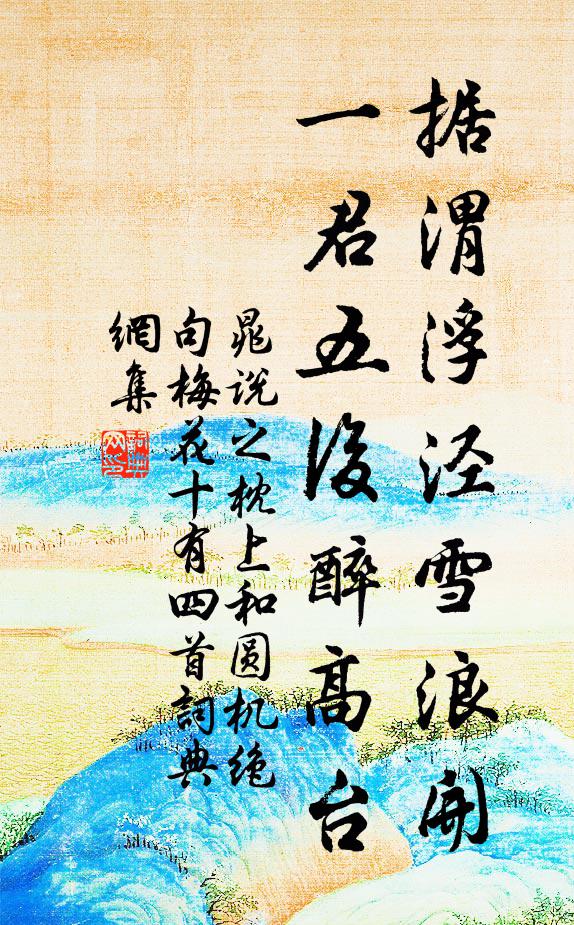 据渭浮泾雪浪开
一君五没醉高台
晁说之枕上和圆机绝
句梅花十有四首词典
網集